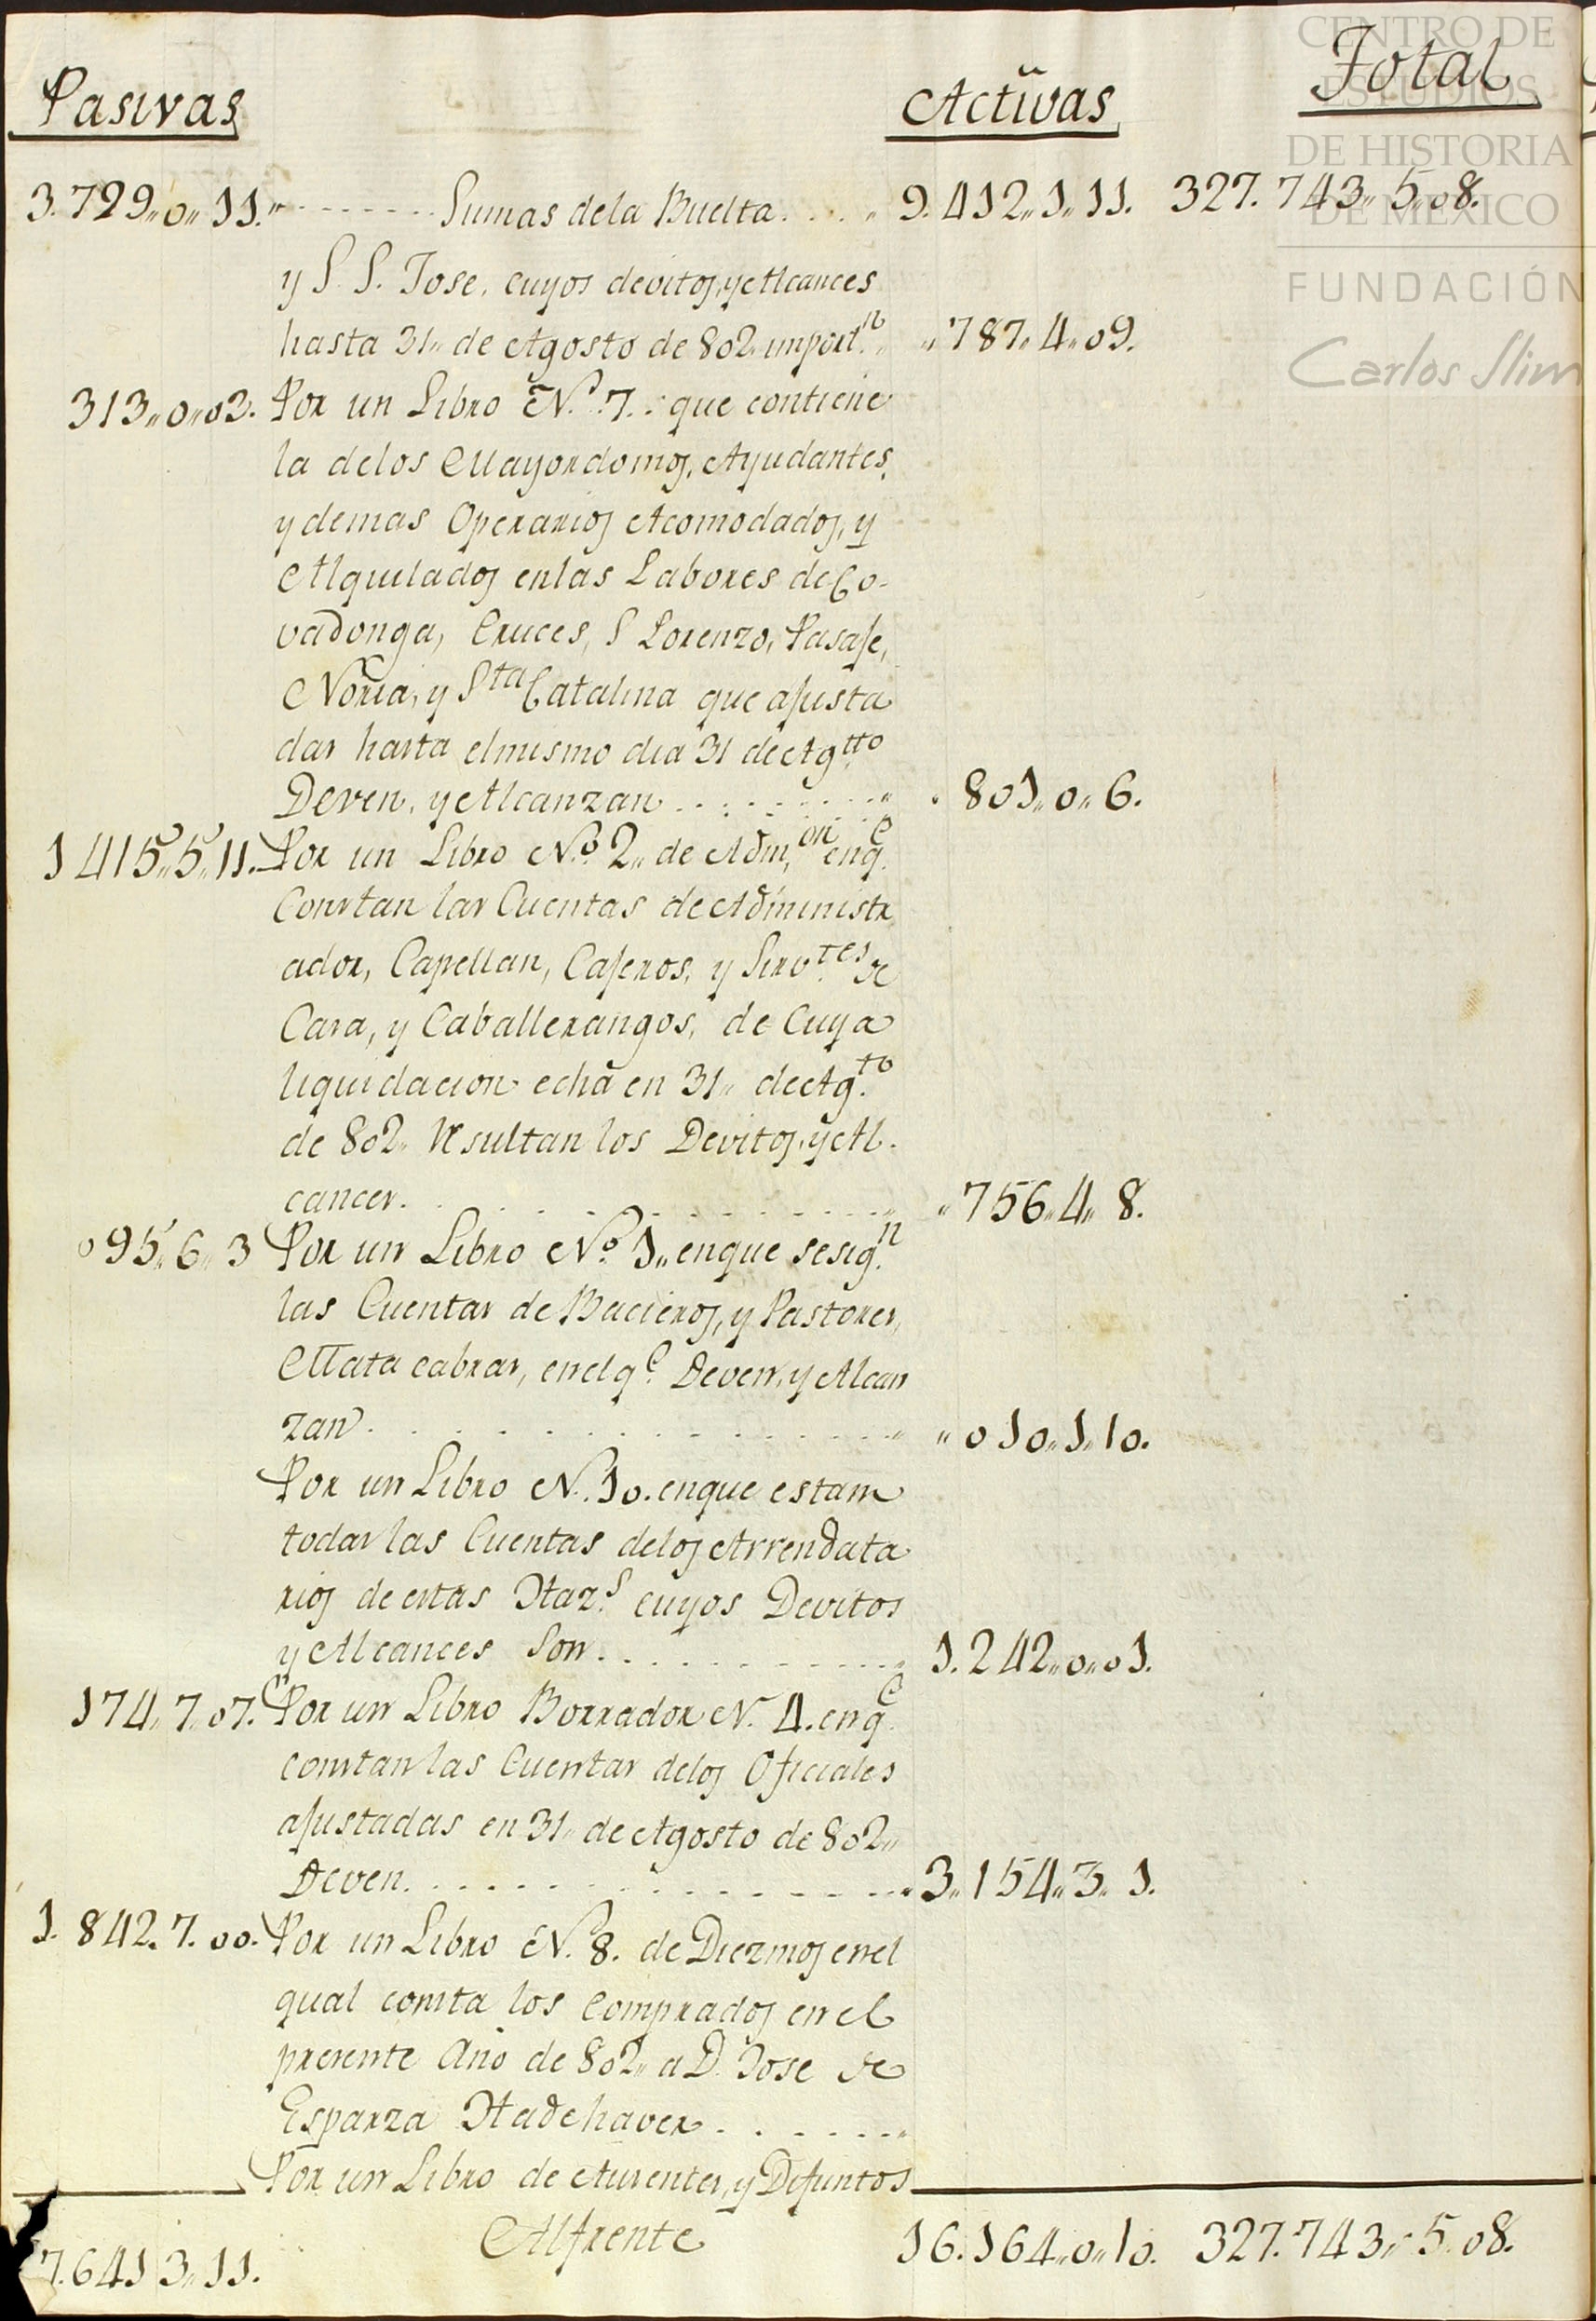 Pasivas Activas Total
3.729,,0,,11.,, Sumas dela Buelta . . . . ,, 9.412,,1,,11. 327.743,,5,,08.
y S. S. Jose, cuyos devitos, y Alcances
hasta 31,, de Agosto de 802,, import.n ,, ,,787,,4,,09.
313,,0,,02. Por un Libro N.o 7. que contiene
la delos Mayordomos, Ayudantes,
y demas Operarios Acomodados, y
Alquilados enlas Labores de Co-
vadonga, Cruces, S Lorenzo, Pasaje,
Noria, y Sta Catalina que ajusta
das hasta elmismo dia 31 de Ag.tto
Deven, y Alcanzan . . . . . . . . ,, . 801,,0,,6.
1415,,5,,11. Por un Libro N.o 2,, de Adm.on enq.e
Constan las Cuentas de Administr
ador, Capellan, Cajeros, y Sirv.tes de
Casa, y Caballerangos, de Cuya
liquidacion echa en 31,, de Ag.to
de 802,, Resultan los Devitos, y Al-
cances. . . . . . . . . . . . ,, ,,756,,4,,8.
095,,6,,3 Por un Libro N.o 1,, enque sesig.n
las Cuentas de Bacieros, y Pastores,
Mata cabras, enelq.e Deven, y Alcan
zan . . . . . . . . . . . . . ,, ,,010,,1,,10.
Por un Libro N. 10. enque estam
todas las Cuentas delos Arrendata
rios de estas Haz.s cuyos Devitos
y Alcances Son . . . . . . . . . ,, 1.242,,0,,01.
174,,7,,07. Por un Libro Borrador N. 4. enq.e
constan las Cuentas delos Oficiales
ajustadas en 31,, de Agosto de 802,,
Deven. . . . . . . . . . . . . ,, 3,,154,,3,,1.
1.842.7.00. Por un Libro N. 8. de Diezmos enel
qual consta los Comprados en el
presente Año de 802,, a D. Jose de
Esparza Hadehaver . . . . . . ,,
Por un Libro de Ausentes, y Difuntos
Alfrente
7.641 3,,11. 16.164,,0,,10. 327.743,,5.08.
CENTRO DE
ESTUDIOS
DE HISTORIA
DE MÉXICO
FUNDACIÓN
Carlos Slim